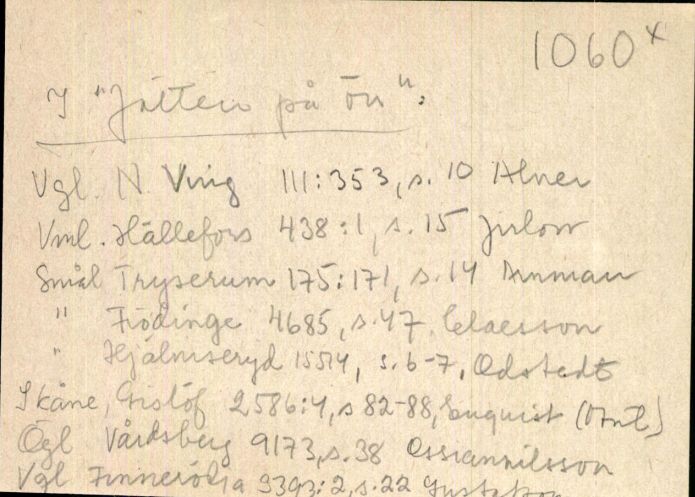 1060 x
I "Jätten på ön":
Vgl. N. Ving 111:353, s. 10 Alner
Vml. Hällefors 438:1, s. 15 Julow
Smål Tryserum 175:171, s. 14 Amman
" Frödinge 4685, s. 47, Claesson
" Hjälmseryd 15514, s. 6-7, Odstedt
Skåne, Gislöf 2586:4, s 82-88, Enquist
Ögl Vårdsberg 9173, s. 38 Ossiannilsson
Vgl Finnerödja 3393:2, s. 22